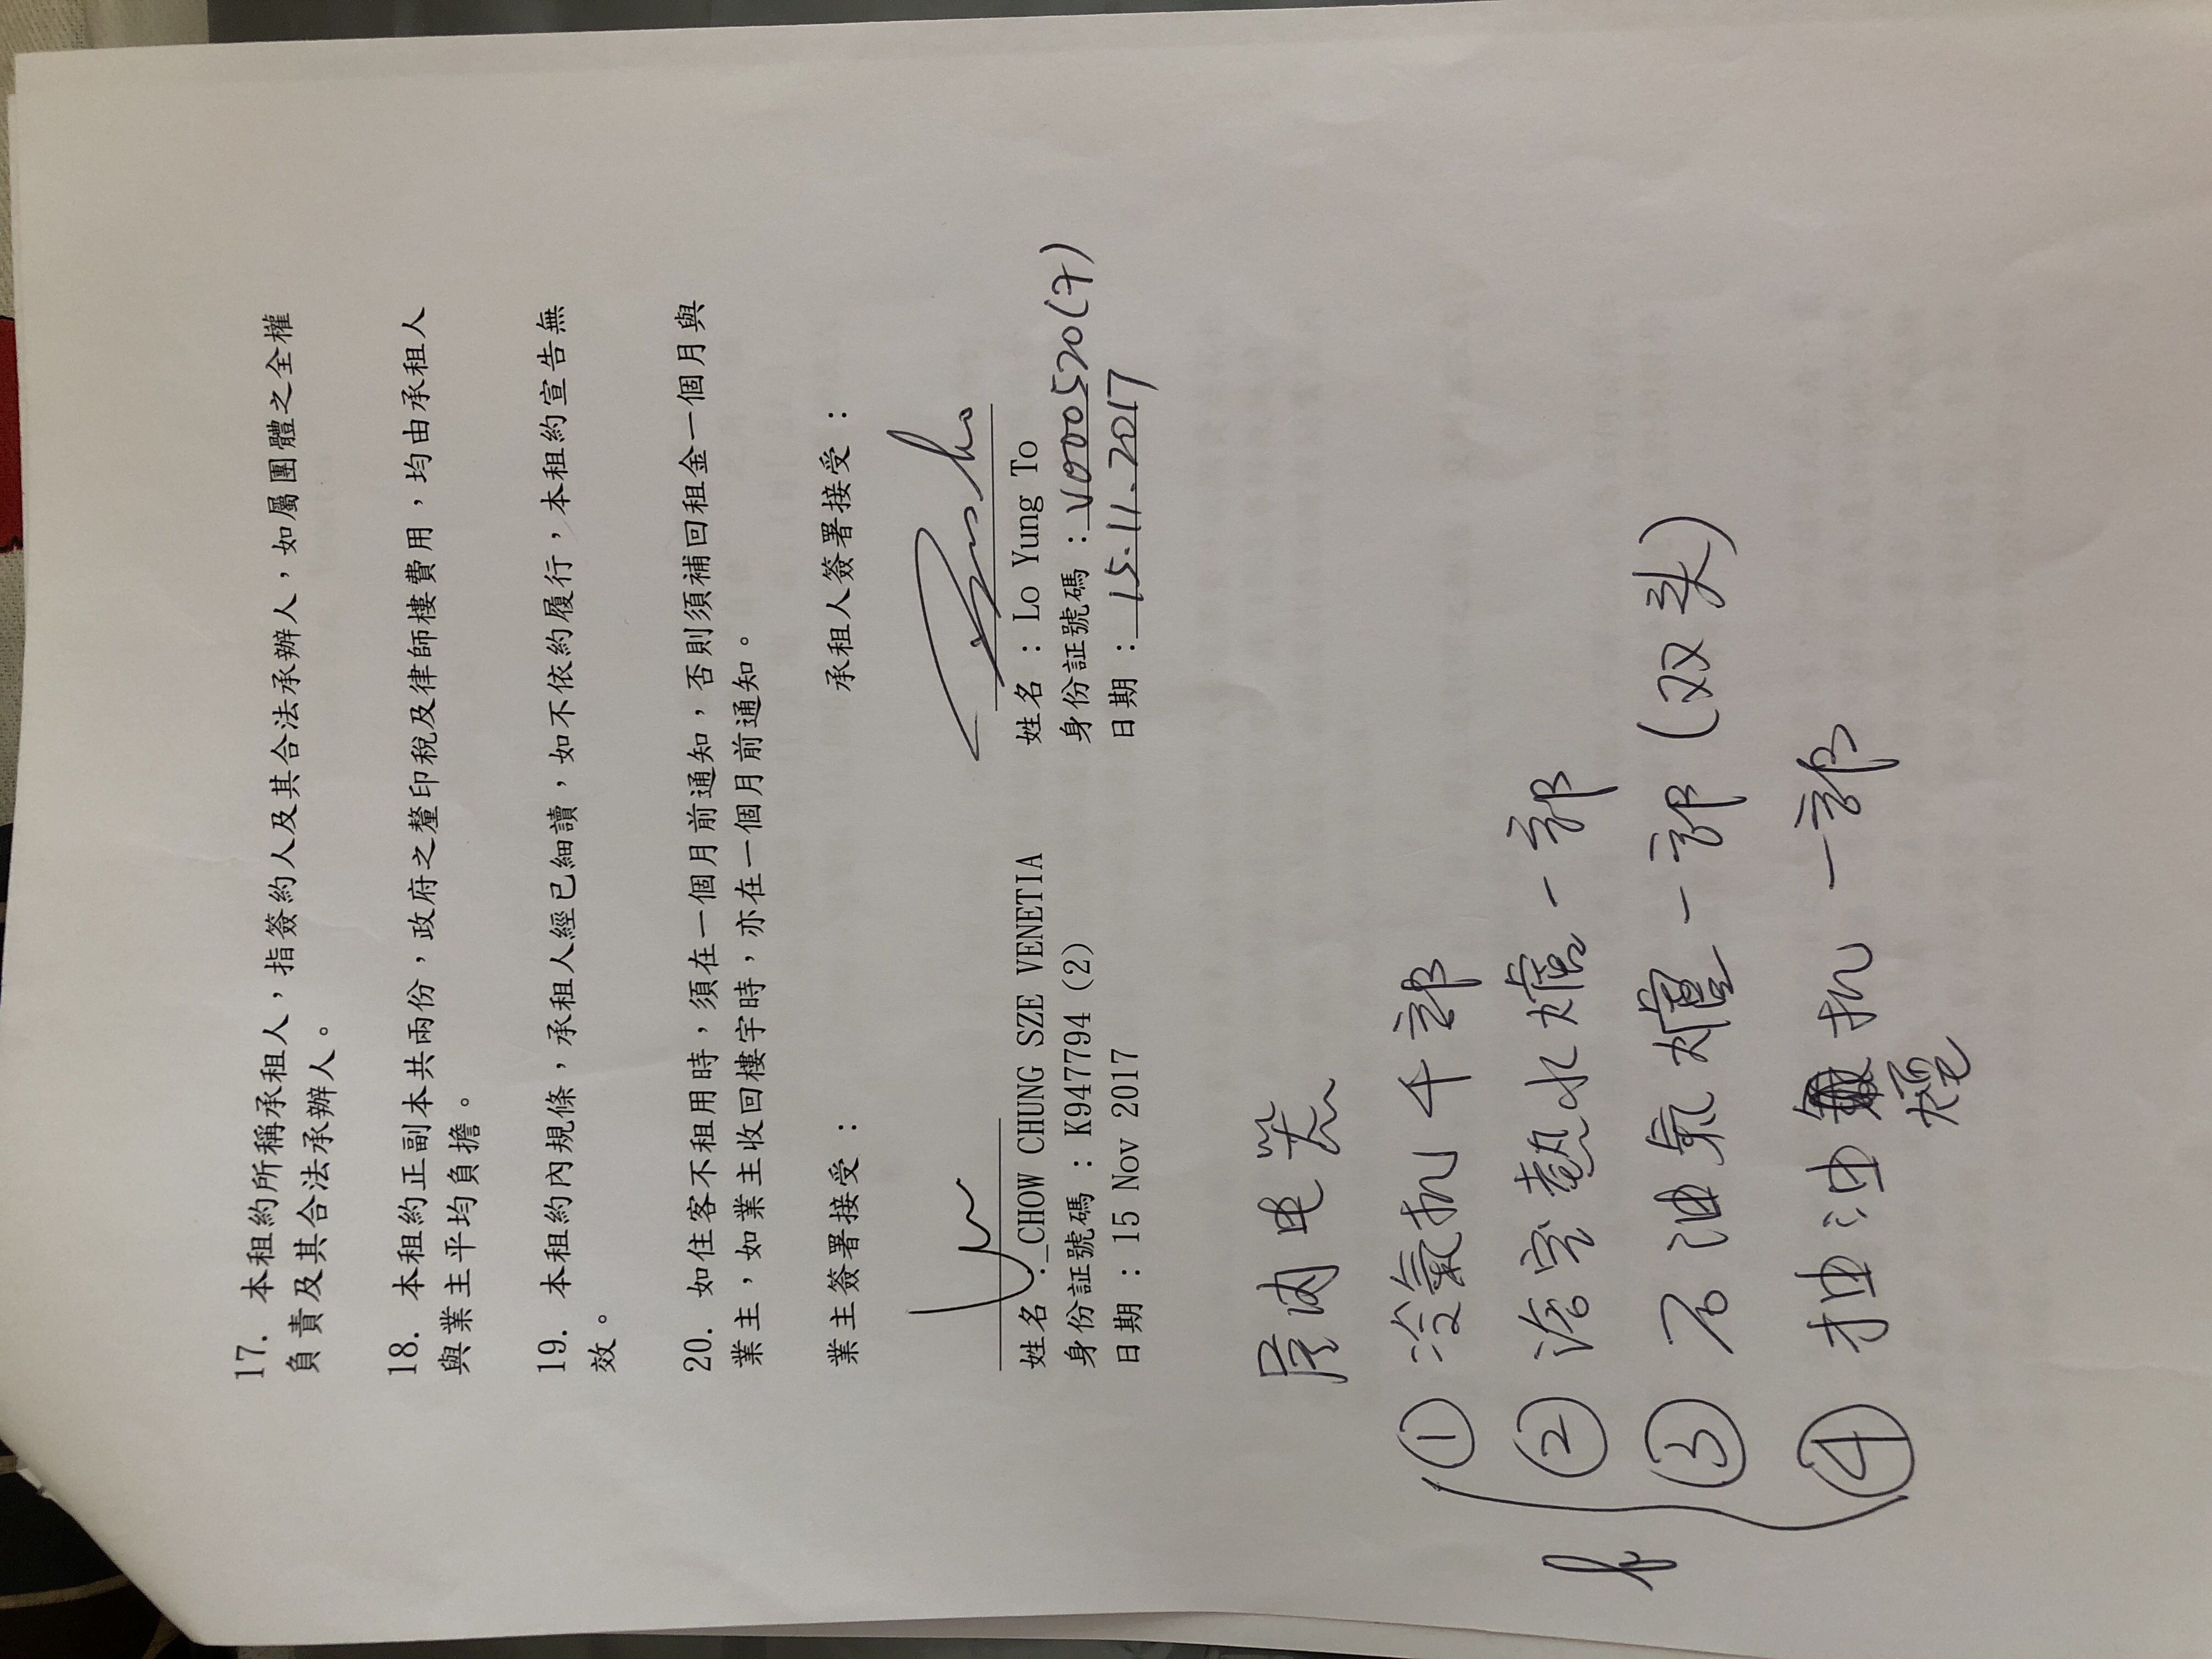 17. 本租約所稱承租人，指簽約人及其合法承辦人，如屬團體之全權
負責及其合法承辦人。
18. 本租約正副本共兩份，政府之釐印稅及律師樓費用，均由承租人
與業主平均負擔。
19. 本租約內規條，承租人經已細讀，如不依約履行，本租約宣告無
效。
20. 如住客不租用時，須在一個月前通知，否則須補回租金一個月與
業主，如業主收回樓宇時，亦在一個月前通知。
業主簽署接受： 承租人簽署接受：
姓名：CHOW CHUNG SZE VENETIA 姓名：Lo Yung To
身份証號碼：K947794 (2) 身份証號碼：V000520(7)
日期：15 Nov 2017 日期：15.11.2017
房内电器
① 冷氣机 部
② 浴室熱水爐一部
③ 石油氣爐一部 (双头)
④ 抽油 机 一部
煙